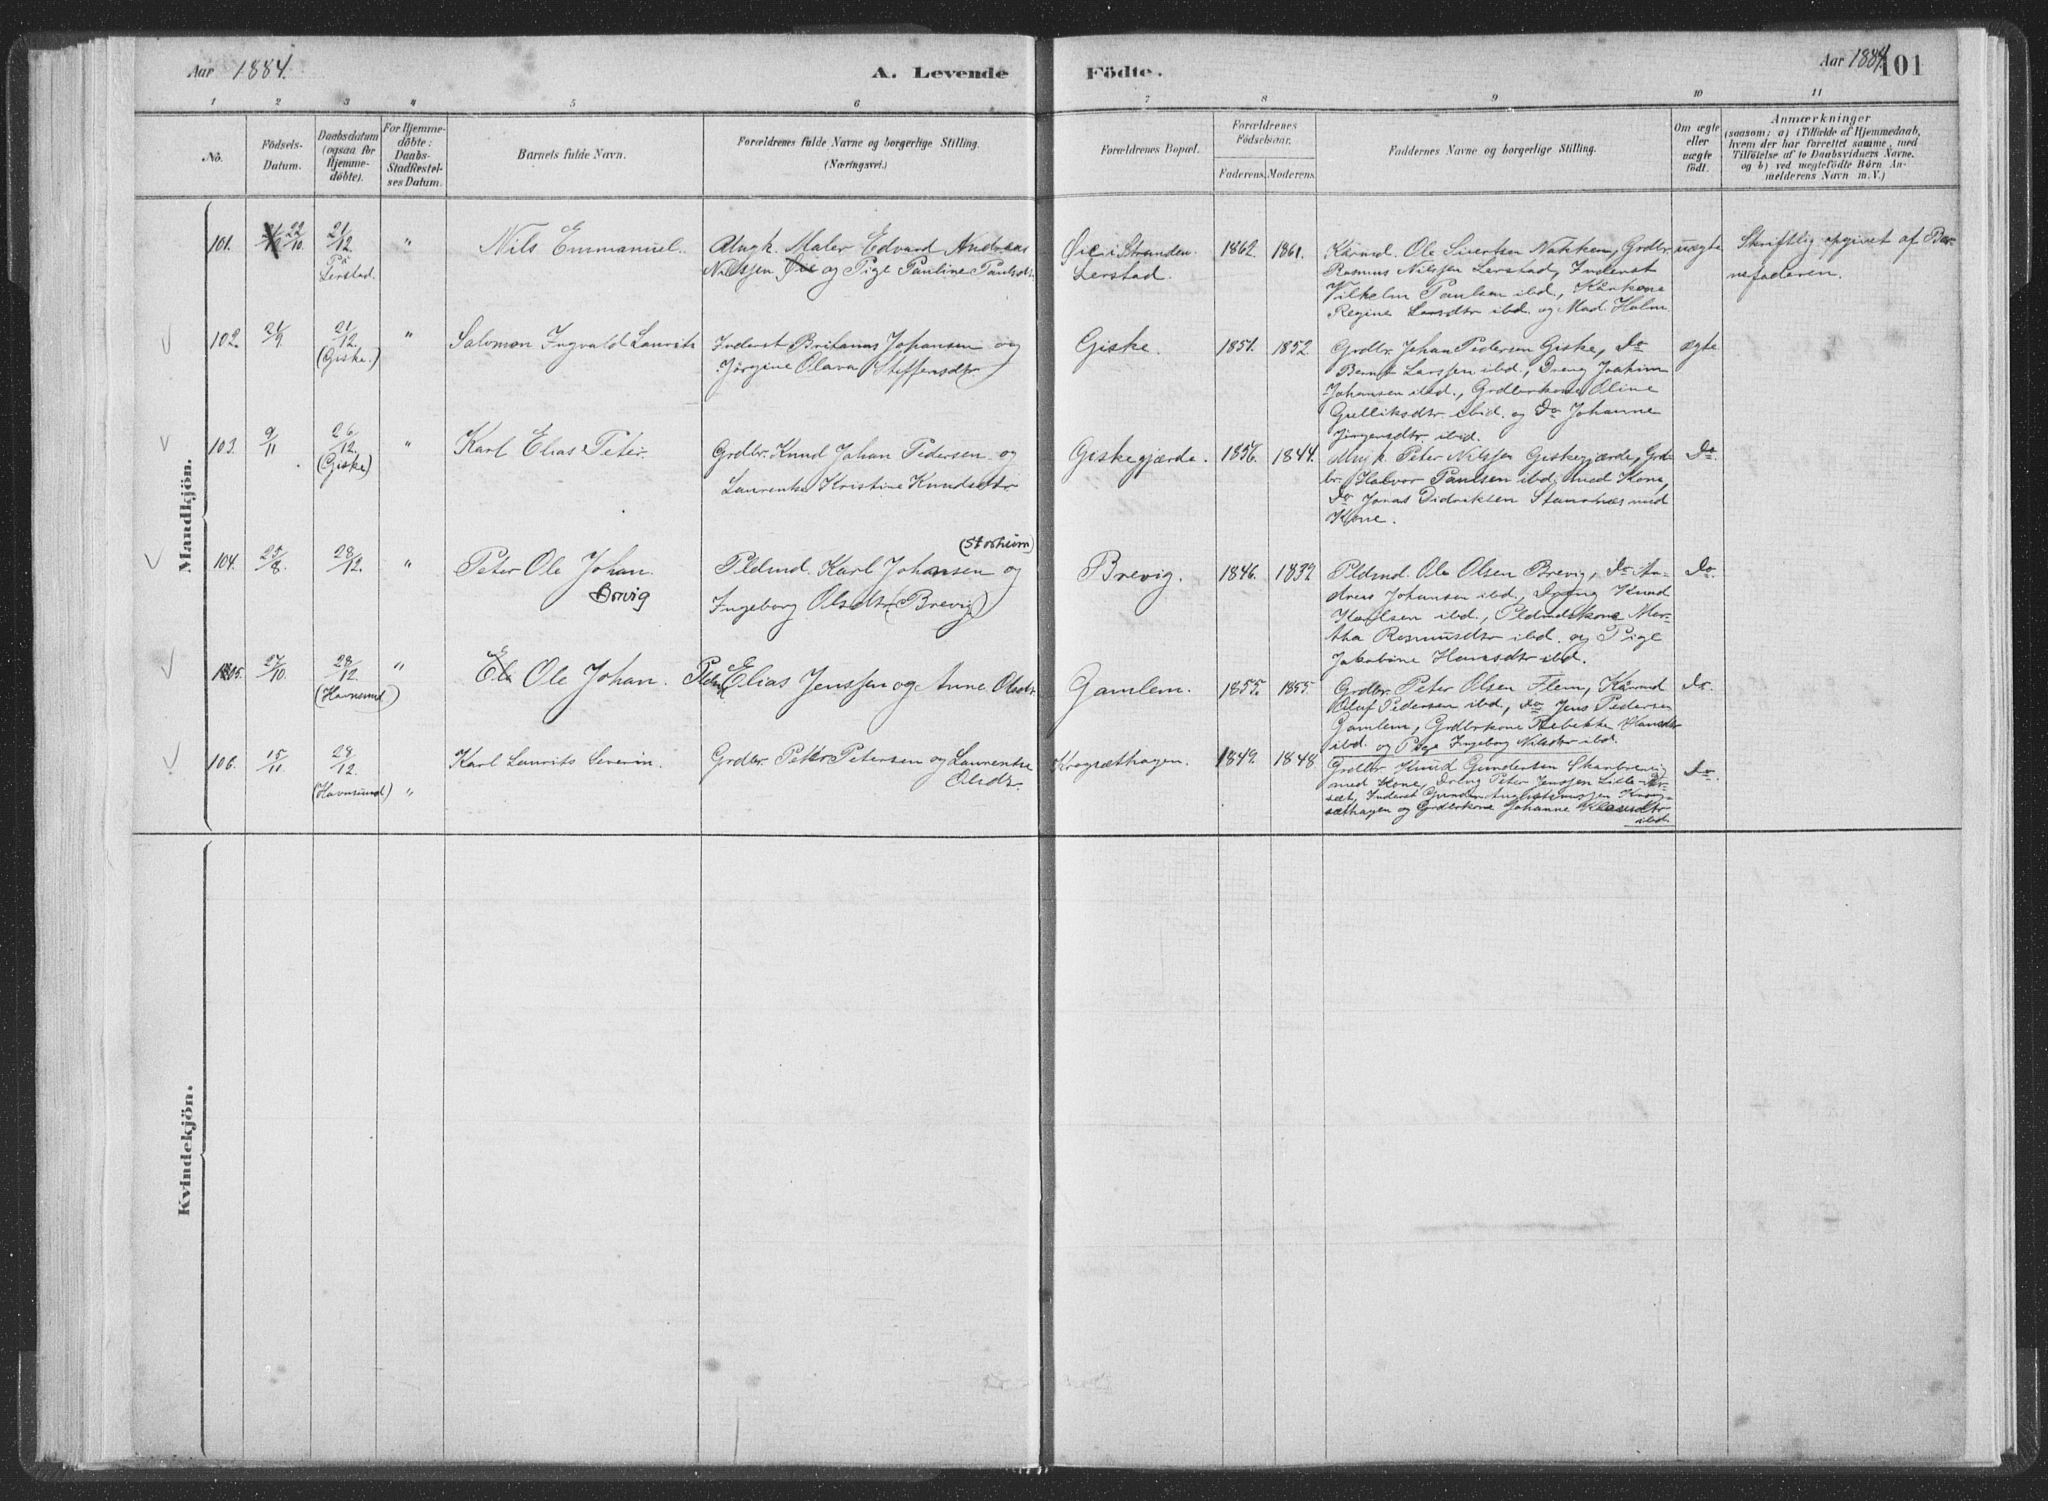 Aar 1884.
A. Levende Födte.
Aar 1884.
101
1 2 3 4 5 6 7 8 9 10 11
No.
Födsels-Datum.
Daabsdatum (ogsaa for Hjemme-döbte).
For Hjemme-döbte: Daabs-Stadfæstel-ses Datum.
Barnets fulde Navn.
Forældrenes fulde Navne og borgerlige Stilling. (Næringsvei.)
Forældrenes Bopæl.
Forældrenes Födselsaar.
Faderens. Moderens.
Faddernes Navne og borgerlige Stilling.
Om ægte eller uægte födt.
Anmærkninger
(saasom: a) i Tilfælde af Hjemmedaab,
hvem der har forrettet samme, med
Tilföielse af to Daabsvidners Navne.
og b) ved uegtefödte Börn An-
melderens Navn m. V.)
Mandkjön.
101. 22/10. 21/12 På Lerstad. "
Nils Emmanuel.
Ungk. Maler Edvard Andreas
Nilssen og Pige Pauline Paulsdtr.
Øie i Stranden.
Lerstad.
1862. 1861.
Kårmd. Ole Sivertsen Nakken, Grdbr.
Rasmus Nilssen Lerstad, Inderst
Vilhelm Paulsen ibd., Kårkone
Regine Larsdtr ibd. og Mad. Holm
uægte
Skriftlig opgivet af Bar-
nefaderen.
102. 21/9. 21/12. (Giske.) "
Salomon Ingvald Laurits
Inderst Britanus Johansen og
Jørgine Olava Steffensdtr
Giske.
1851. 1852.
Grdbr. Johan Pedersen Giske, Do
Bernt Larssen ibd., Dreng Joakim
Johansen ibd., Grdbrkone Oline
Gulliksdtr ibid. og Do Johanne
Jørgensdtr. ibid.
ægte
103. 9/11 26/12. (Giske) "
Karl Elias Peter.
Grdbr. Knud Johan Pedersen og
Laurentse Kristine Knudsdtr
Giskegjærde.
1856. 1844.
Ungk. Peter Nilssen Giskegjærde, Grd-
br. Halvor Paulsen ibd. med Kone,
Do Jonas Didriksen Staurnæs med
Kone.
Do.
104. 25/8. 28/12. "
Peter Ole Johan.
Brevig
(Storheim)
Pldmd. Karl Johansen og
Ingeborg Olsdtr (Brevig)
Brevig.
1846. 1832
Pldmd. Ole Olsen Brevig, Do An-
dreas Johansen ibd., Dreng Knud
Karlsen ibd., Pldmdskone Mar-
tha Rasmusdtr ibd. og Pige
Jakobine Hansdtr ibd.
Do.
105. 27/10. 28/12 (Havnsund) "
Ole Johan.
Pldmd Elias Jenssen og Anne Olsdtr
Gamlem.
1855. 1855.
Grdbr. Peter Olsen Flem, Kårmd
Oluf Pedersen ibd., Do Jens Pedersen
Gamlem, Grdbrkone Rebekka Hansdtr
ibd. og Pige Ingeborg Nilsdtr ibd.
Do.
106. 15/11. 28/12. (Havnsund) "
Karl Laurits Severin.
Grdbr. Peter Petersen og Laurentse
Olsdtr.
Krogsæthagen.
1849. 1848.
Grdbr. Knud Gundersen
med Kone, Dreng Peter Jenssen Lille-
sæt, Inderst Gunder Krog-
sæthagen og Grdbrkone Johanne
ibd.
Do.
Kvindekjön.